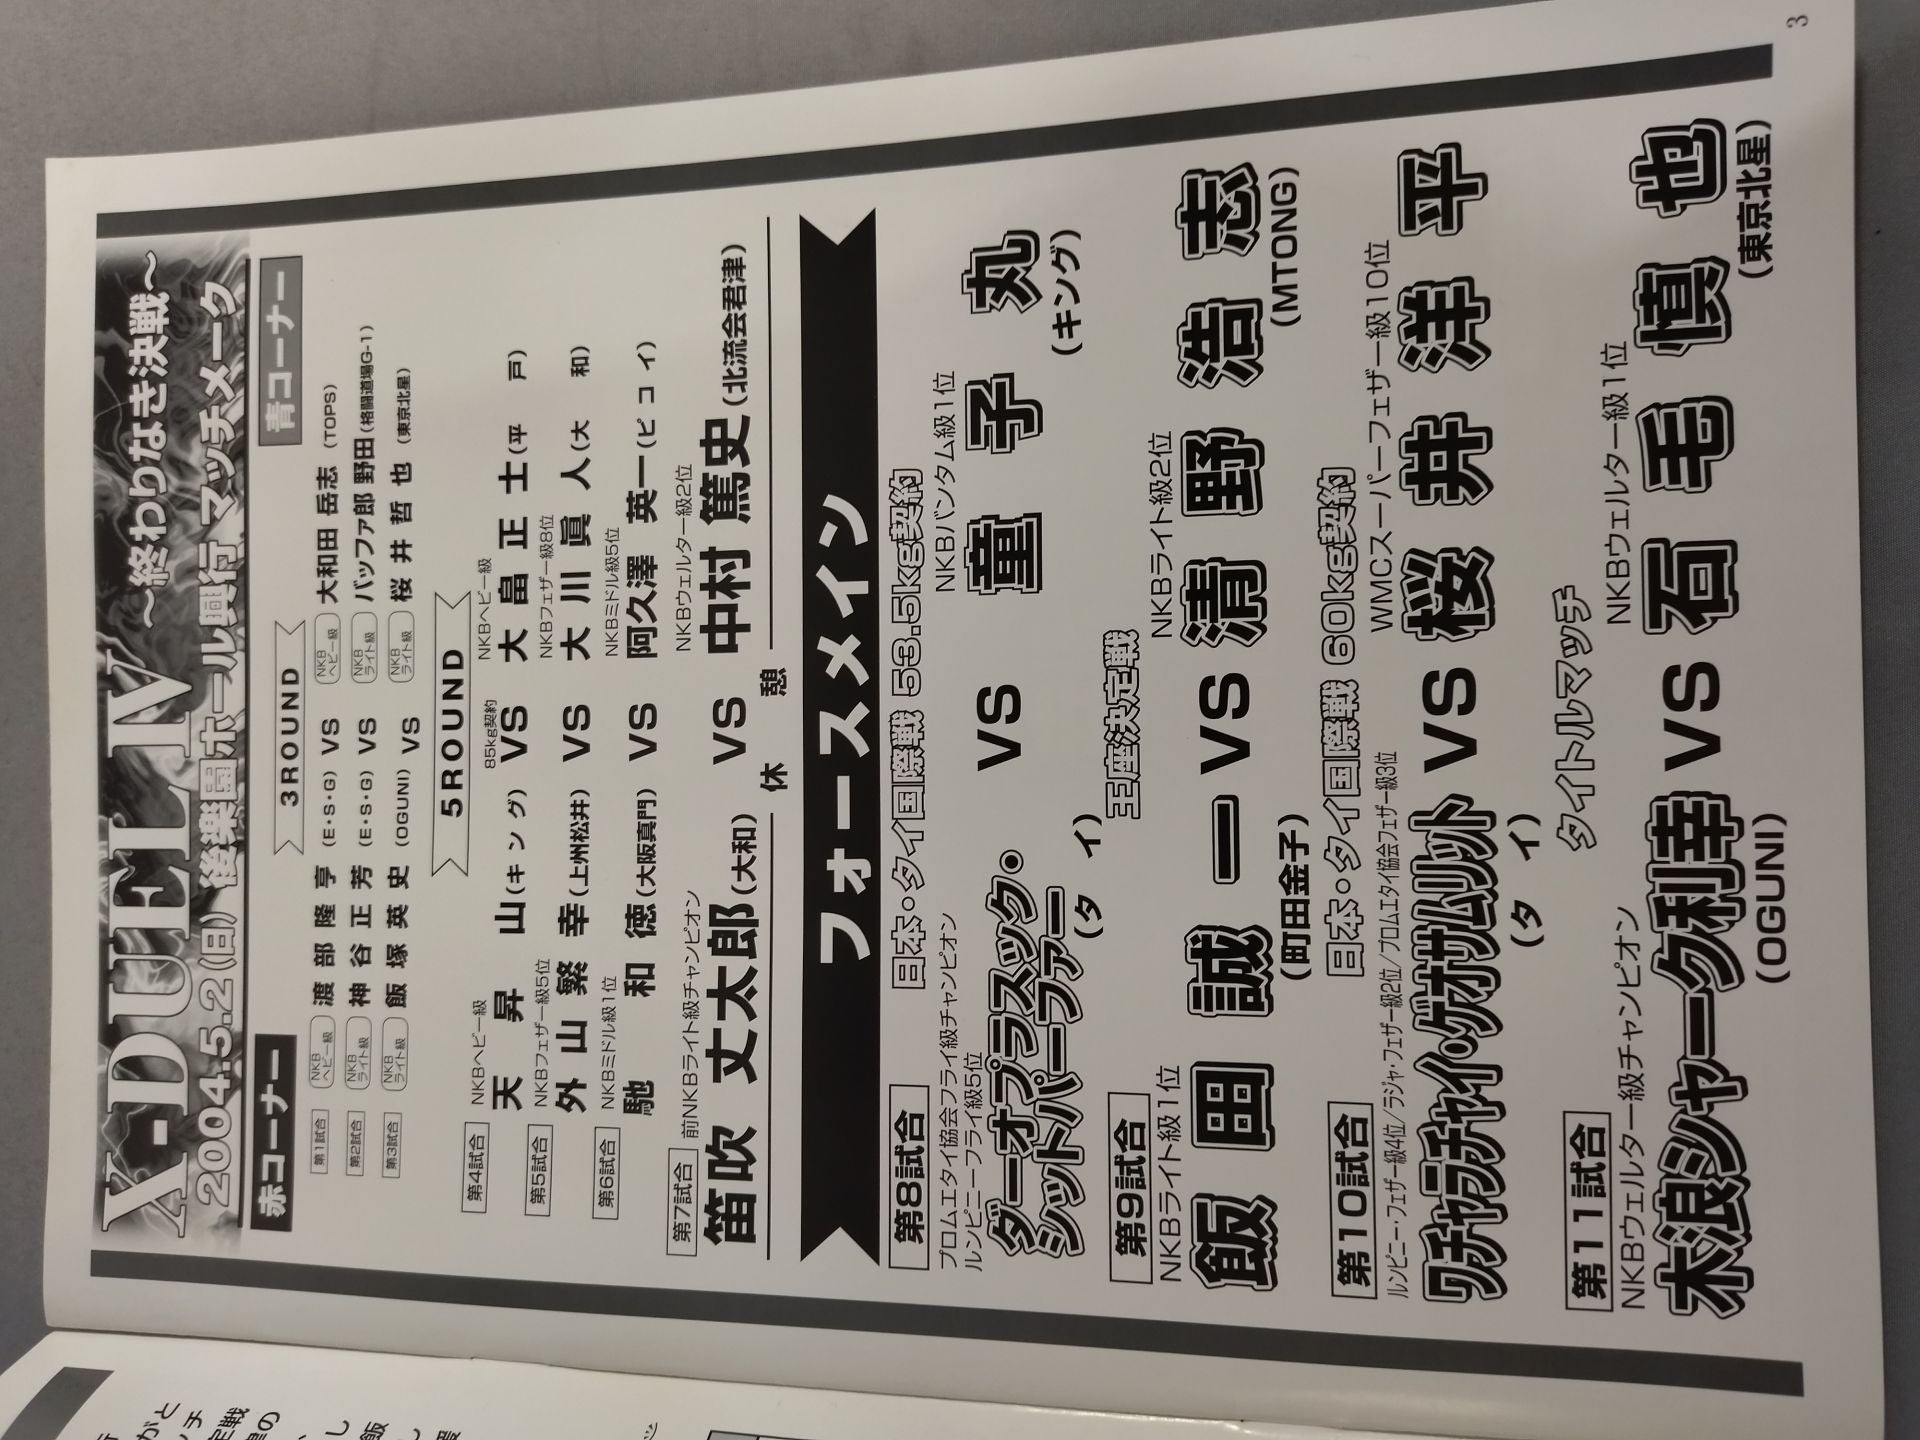 X-DUEL Ⅳ ～終わりなき決戦～
2004.5.2(日) 後樂園ホール興行 マッチメーク
赤コーナー 青コーナー
3ROUND
第1試合 NKBヘビー級 渡部 隆亨 (E・S・G) VS NKBヘビー級 大和田 岳志 (TOPS)
第2試合 NKBライト級 神谷 正芳 (E・S・G) VS NKBライト級 バッファ郎 野田 (格闘道場G-1)
第3試合 NKBライト級 飯塚 英史 (OGUNI) VS NKBライト級 桜井 哲也 (東京北星)
5ROUND
第4試合 NKBヘビー級 85kg契約 NKBヘビー級
天昇山 (キング) VS 大畠 正士 (平戸)
第5試合 NKBフェザー級5位 NKBフェザー級8位
外山 繁幸 (上州松井) VS 大川 眞人 (大和)
第6試合 NKBミドル級1位 NKBミドル級5位
馳 和徳 (大阪真門) VS 阿久澤 英一 (ピコイ)
第7試合 前NKBライト級チャンピオン NKBウェルター級2位
笛吹 丈太郎 (大和) VS 中村 篤史 (北流会君津)
休憩
フォースメイン
第8試合 日本・タイ国際戦 53.5kg契約
プロムエタイ協会フライ級チャンピオン
ルンピニーフライ級5位 NKBバンタム級1位
ダーオプラスック・
シットパーファー VS 童子丸
(タイ) (キング)
第9試合 王座決定戦
NKBライト級1位 NKBライト級2位
飯田 誠一 VS 清野 浩志
(町田金子) (MTONG)
第10試合 日本・タイ国際戦 60kg契約
ルンピニー・フェザー級4位/ラジャ・フェザー級2位/プロムエタイ協会フェザー級3位 WMCスーパーフェザー級10位
ワチャラチャイ・ゲオサムリット VS 桜井 洋平
(タイ)
第11試合 タイトルマッチ
NKBウェルター級チャンピオン NKBウェルター級1位
木浪シャーク利幸 VS 石毛 慎也
(OGUNI) (東京北星)
3